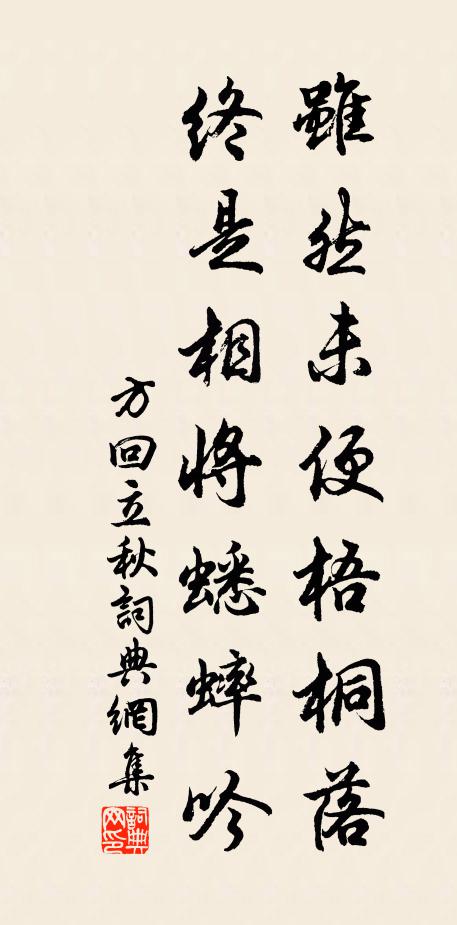 雖然未便梧桐落
終是相將蟋蟀吟
方回立秋詞典網集
詞典網印